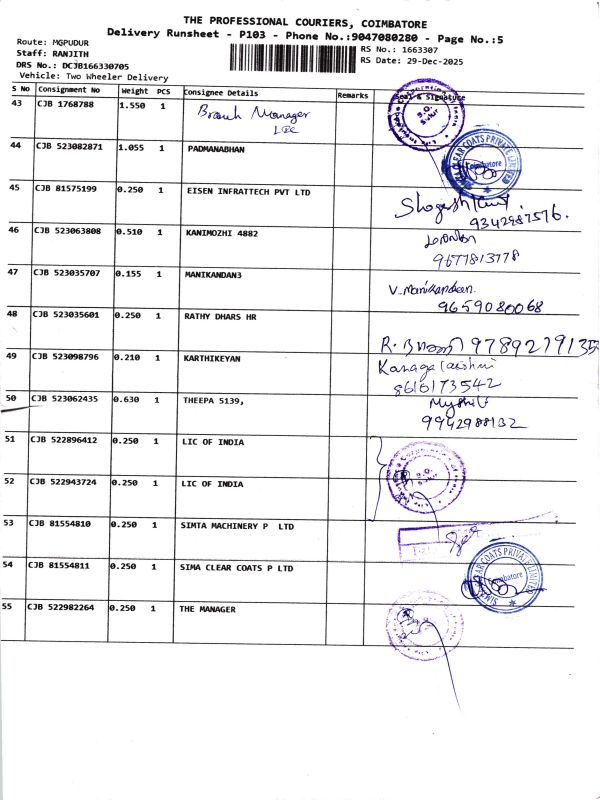 THE PROFESSIONAL COURIERS, COIMBATORE
Delivery Runsheet - P103 - Phone No.:9047080280 - Page No.:5
Route: MGPUDUR
Staff: RANJITH
DRS No.: DCJB166330705
Vehicle: Two Wheeler Delivery
RS No.: 1663307
RS Date: 29-Dec-2025
S No Consignment No Weight PCS Consignee Details Remarks Seal & Signature
43 CJB 1768788 1.550 1 Branch Manager
LIC
44 CJB 523082871 1.055 1 PADMANABHAN
CLEAR COATS PRIVATE LIMITED
Coimbatore
45 CJB 81575199 0.250 1 EISEN INFRATTECH PVT LTD
9342987576.
46 CJB 523063808 0.510 1 KANIMOZHI 4882
9677813778
47 CJB 523035707 0.155 1 MANIKANDAN3
V. Manikandan
9659080068
48 CJB 523035601 0.250 1 RATHY DHARS HR
R. 9789279135
49 CJB 523098796 0.210 1 KARTHIKEYAN
Kanagalakshmi
8610173542
50 CJB 523062435 0.630 1 THEEPA 5139,
9942988132
51 CJB 522896412 0.250 1 LIC OF INDIA
52 CJB 522943724 0.250 1 LIC OF INDIA
53 CJB 81554810 0.250 1 SIMTA MACHINERY P LTD
54 CJB 81554811 0.250 1 SIMA CLEAR COATS P LTD
CLEAR COATS PRIVATE LIMITED
Coimbatore
55 CJB 522982264 0.250 1 THE MANAGER